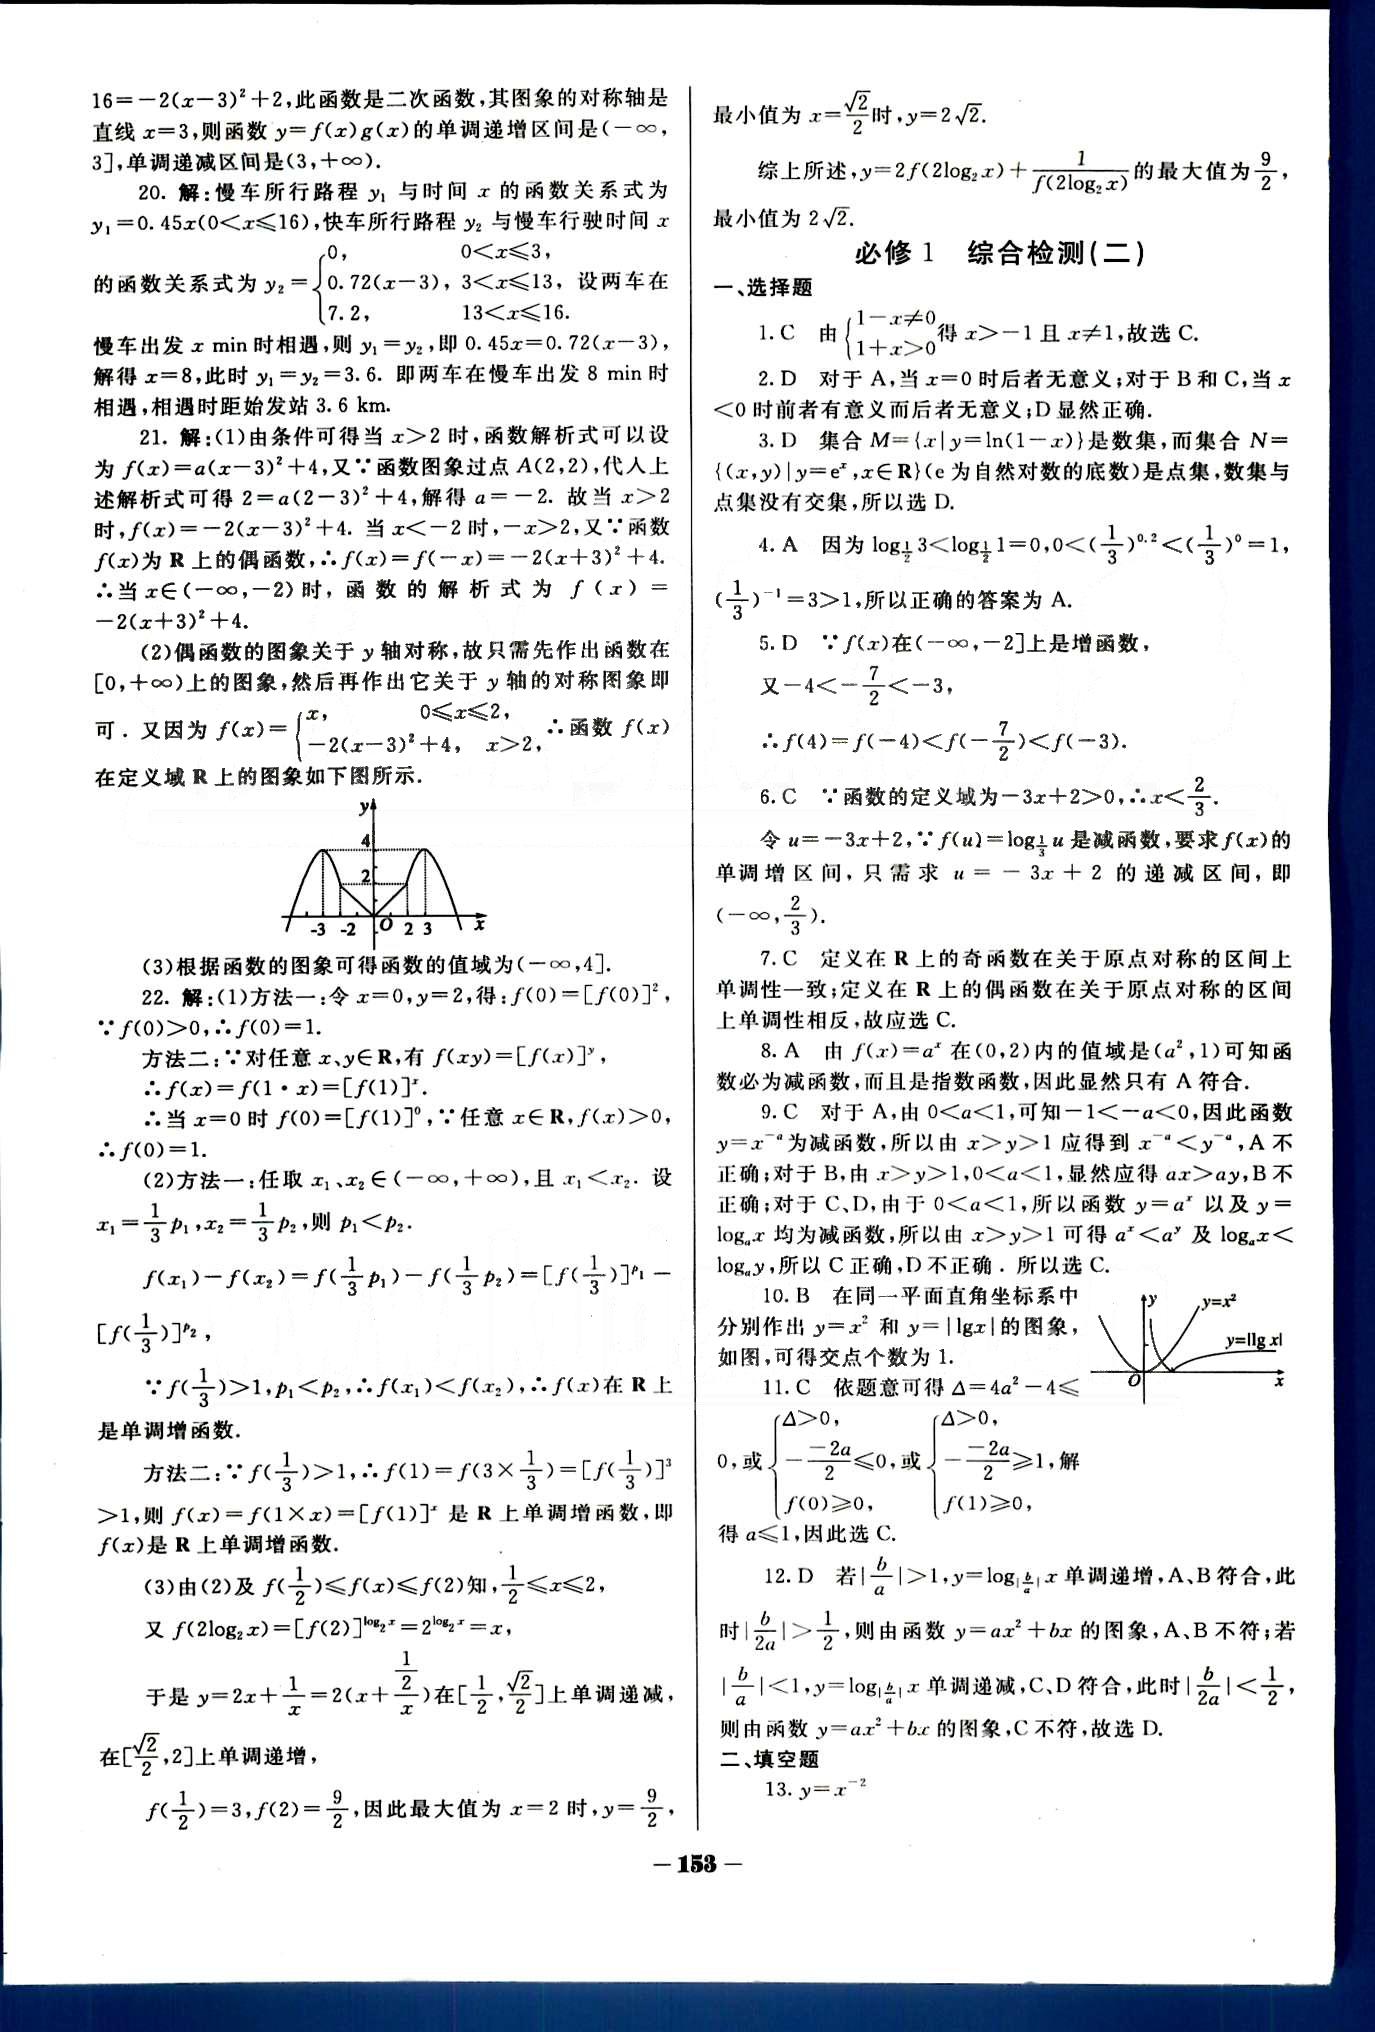 16=－2(x－3)²＋2,此函数是二次函数,其图象的对称轴是
直线 x=3,则函数 y=f(x)g(x)的单调递增区间是(－∞,
3],单调递减区间是(3,＋∞).
20. 解:慢车所行路程 y₁ 与时间 x 的函数关系式为
y₁=0.45x(0<x≤16),快车所行路程 y₂ 与慢车行驶时间 x
的函数关系式为 y₂={0, 0<x≤3,
0.72(x－3), 3<x≤13, 设两车在
7.2, 13<x≤16.
慢车出发 x min 时相遇,则 y₁=y₂,即 0.45x=0.72(x－3),
解得 x=8,此时 y₁=y₂=3.6. 即两车在慢车出发 8 min 时
相遇,相遇时距始发站 3.6 km.
21. 解:(1)由条件可得当 x>2 时,函数解析式可以设
为 f(x)=a(x－3)²＋4,又∵函数图象过点 A(2,2),代人上
述解析式可得 2=a(2－3)²＋4,解得 a=－2. 故当 x>2
时,f(x)=－2(x－3)²＋4. 当 x<－2 时,－x>2,又∵函数
f(x)为 R 上的偶函数,∴f(x)=f(－x)=－2(x＋3)²＋4.
∴当 x∈(－∞,－2) 时, 函数的解析式为 f(x)=
－2(x＋3)²＋4.
(2)偶函数的图象关于 y 轴对称,故只需先作出函数在
[0,＋∞)上的图象,然后再作出它关于 y 轴的对称图象即
可. 又因为 f(x)={x, 0≤x≤2,
－2(x－3)²＋4, x>2, ∴函数 f(x)
在定义域 R 上的图象如下图所示.
y
4
2
-3 -2 O 2 3 x
(3)根据函数的图象可得函数的值域为(－∞,4].
22. 解:(1)方法一:令 x=0,y=2,得:f(0)=[f(0)]²,
∵f(0)>0,∴f(0)=1.
方法二:∵对任意 x、y∈R,有 f(xy)=[f(x)]ʸ,
∴f(x)=f(1·x)=[f(1)]ˣ.
∴当 x=0 时 f(0)=[f(1)]⁰,∵任意 x∈R,f(x)>0,
∴f(0)=1.
(2)方法一:任取 x₁、x₂∈(－∞,＋∞),且 x₁<x₂. 设
x₁=1/3 p₁,x₂=1/3 p₂,则 p₁<p₂.
f(x₁)－f(x₂)=f(1/3 p₁)－f(1/3 p₂)=[f(1/3)]^p₁－
[f(1/3)]^p₂,
∵f(1/3)>1,p₁<p₂,∴f(x₁)<f(x₂),∴f(x)在 R 上
是单调增函数.
方法二:∵f(1/3)>1,∴f(1)=f(3×1/3)=[f(1/3)]³
>1,则 f(x)=f(1×x)=[f(1)]ˣ 是 R 上单调增函数,即
f(x)是 R 上单调增函数.
(3)由(2)及 f(1/2)≤f(x)≤f(2)知,1/2≤x≤2,
又 f(2log₂x)=[f(2)]^log₂x=2^log₂x=x,
于是 y=2x＋1/x=2(x＋(1/2)/x)在[1/2,√2/2]上单调递减,
在[√2/2,2]上单调递增,
f(1/2)=3,f(2)=9/2,因此最大值为 x=2 时,y=9/2,
最小值为 x=√2/2时,y=2√2.
综上所述,y=2f(2log₂x)＋1/f(2log₂x)的最大值为9/2,
最小值为 2√2.
必修 1 综合检测(二)
一、选择题
1. C 由{1－x≠0
1＋x>0得 x>－1 且 x≠1,故选 C.
2. D 对于 A,当 x=0 时后者无意义;对于 B 和 C,当 x
<0 时前者有意义而后者无意义;D 显然正确.
3. D 集合 M={x|y=ln(1－x)}是数集,而集合 N=
{(x,y)|y=eˣ,x∈R}(e 为自然对数的底数)是点集,数集与
点集没有交集,所以选 D.
4. A 因为 log_(1/2) 3<log_(1/2) 1=0,0<(1/3)^0.2<(1/3)⁰=1,
(1/3)⁻¹=3>1,所以正确的答案为 A.
5. D ∵f(x)在(－∞,－2]上是增函数,
又－4<－7/2<－3,
∴f(4)=f(－4)<f(－7/2)<f(－3).
6. C ∵函数的定义域为－3x＋2>0,∴x<2/3.
令 u=－3x＋2,∵f(u)=log_(1/3) u 是减函数,要求f(x)的
单调增区间,只需求 u=－3x＋2 的递减区间,即
(－∞,2/3).
7. C 定义在 R 上的奇函数在关于原点对称的区间上
单调性一致;定义在 R 上的偶函数在关于原点对称的区间
上单调性相反,故应选 C.
8. A 由 f(x)=aˣ 在(0,2)内的值域是(a²,1)可知函
数必为减函数,而且是指数函数,因此显然只有 A 符合.
9. C 对于 A,由 0<a<1,可知－1<－a<0,因此函数
y=x⁻ᵃ为减函数,所以由 x>y>1 应得到 x⁻ᵃ<y⁻ᵃ,A 不
正确;对于 B,由 x>y>1,0<a<1,显然应得 ax>ay,B 不
正确;对于 C、D,由于 0<a<1,所以函数 y=aˣ 以及 y=
logₐx 均为减函数,所以由 x>y>1 可得 aˣ<aʸ 及 logₐx<
logₐy,所以 C 正确,D 不正确. 所以选 C.
10. B 在同一平面直角坐标系中
分别作出 y=x² 和 y=|lgx|的图象,
如图,可得交点个数为 1.
y y=x²
y=|lg x|
O x
11. C 依题意可得 Δ=4a²－4≤
0,或{Δ>0, －(－2a)/2≤0, f(0)≥0,或{Δ>0, －(－2a)/2≥1, f(1)≥0,解
得 a≤1,因此选 C.
12. D 若|b/a|>1,y=log_|b/a| x 单调递增,A、B 符合,此
时|b/2a|>1/2,则由函数 y=ax²＋bx 的图象,A、B 不符;若
|b/a|<1,y=log_|b/a| x 单调递减,C、D 符合,此时|b/2a|<1/2,
则由函数 y=ax²＋bx 的图象,C 不符,故选 D.
二、填空题
13. y=x⁻²
－153－